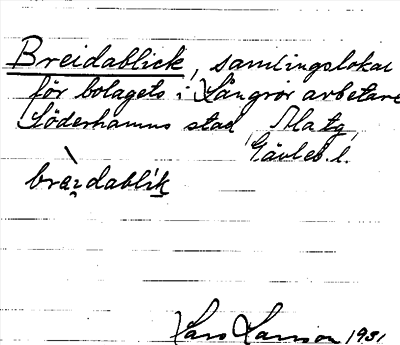 Breidablick, samlingslokal
för bolagets i Långrör arbetare
Söderhamns stad,
Gävleb. l.
bra̱i̯dablík
Lars Larsson 1931